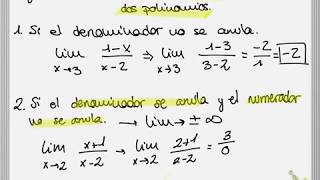 dos polinomios.
1. Si el denominador no se anula.
lim x→3 1-x/x-2 ⇒ lim x→3 1-3/3-2 = -2/1 = -2
2. Si el denominador se anula y el numerador
no se anula. → lim → ± ∞
lim x→2 x+1/x-2 → lim x→2 2+1/2-2 = 3/0